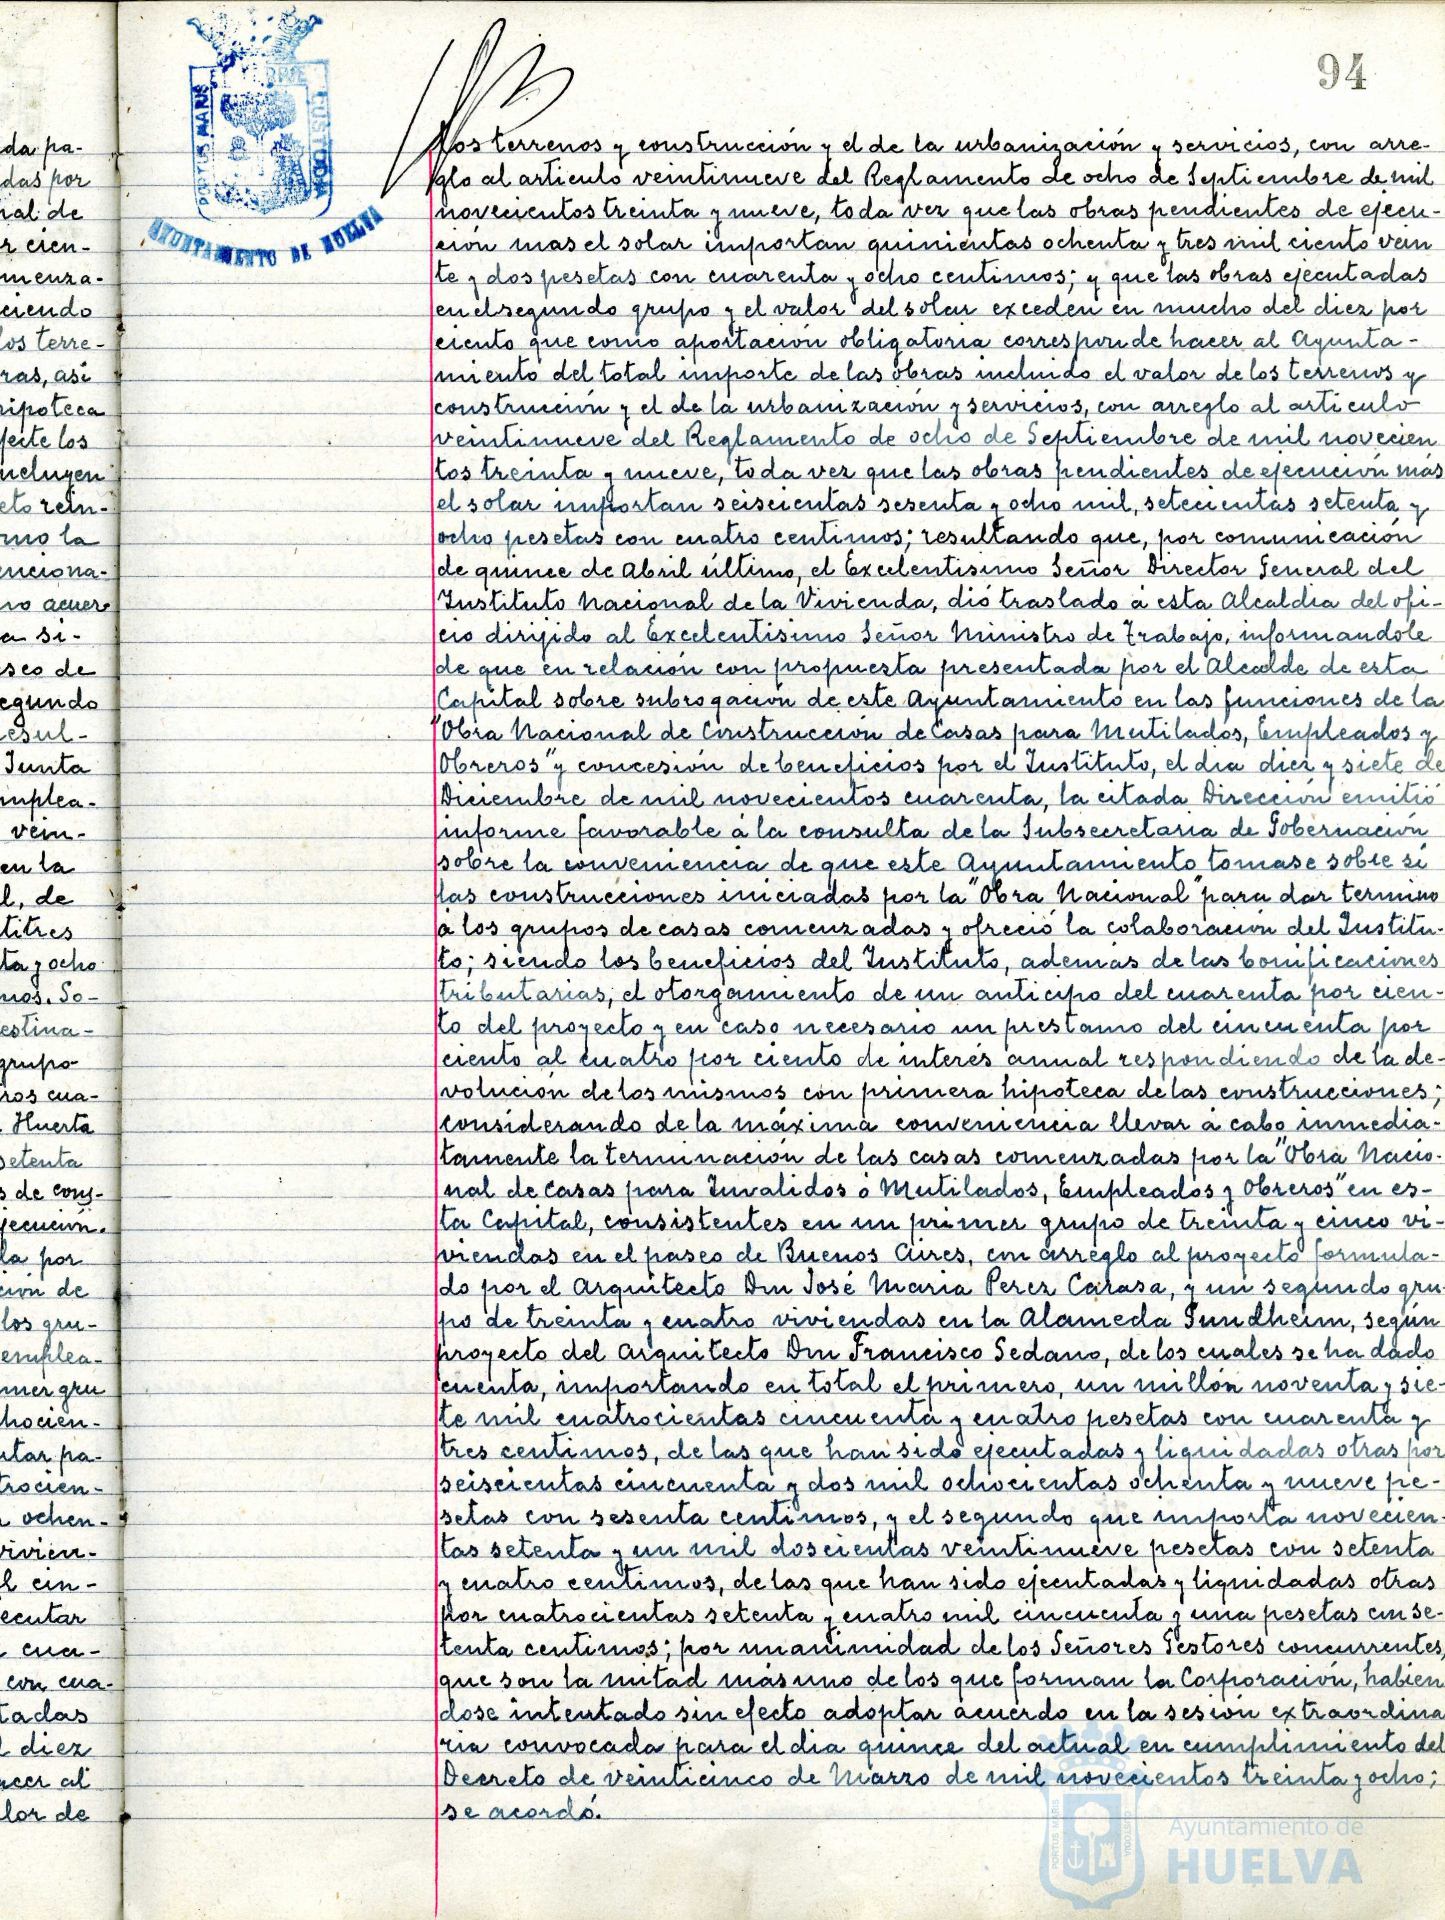 94
PORTUS MARIS
CUSTODIA
AYUNTAMIENTO DE HUELVA
da pa-
das por
nal de
r cien-
menza-
ciendo
los terre-
ras, asi
hipoteca
fecte los
ncluyen
eto rein-
omo la
enciona-
no acuer-
a si-
seo de
egundo
esul-
Junta
mplea-
vein-
en la
l, de
titres
ta y ocho
mos. So-
estina-
grupo
ros cua-
Huerta
setenta
s de cons-
jecución.
la por
ción de
los gru-
emplea-
mer gru
hocien-
utar pa-
trocien-
ochen-
vivien-
l cin-
ecutar
cua-
con cua-
tadas
l diez
acer al
lor de
los terrenos y construcción y el de la urbanización y servicios, con arre-
glo al articulo veintinueve del Reglamento de ocho de Septiembre de mil
novecientos treinta y nueve, toda vez que las obras pendientes de ejecu-
ción mas el solar importan quinientas ochenta y tres mil ciento vein
te y dos pesetas con cuarenta y ocho centimos; y que las obras ejecutadas
en el segundo grupo y el valor del solar exceden en mucho del diez por
ciento que como aportación obligatoria corresponde hacer al Ayunta-
miento del total importe de las obras incluido el valor de los terrenos y
construcción y el de la urbanización y servicios, con arreglo al articulo
veintinueve del Reglamento de ocho de Septiembre de mil novecien
tos treinta y nueve, toda vez que las obras pendientes de ejecución más
el solar importan seiscientas sesenta y ocho mil, setecientas setenta y
ocho pesetas con cuatro centimos; resultando que, por comunicación
de quince de Abril último, el Excelentisimo Señor Director General del
Instituto Nacional de la Vivienda, dió traslado á esta Alcaldia del ofi-
cio dirijido al Excelentisimo Señor Ministro de Trabajo, informandole
de que en relación con propuesta presentada por el Alcalde de esta
Capital sobre subrogación de este Ayuntamiento en las funciones de la
"Obra Nacional de Construcción de Casas para Mutilados, Empleados y
Obreros" y concesión de beneficios por el Instituto, el dia diez y siete de
Diciembre de mil novecientos cuarenta, la citada Dirección emitió
informe favorable á la consulta de la Subsecretaria de Gobernación
sobre la conveniencia de que este Ayuntamiento tomase sobre si
las construcciones iniciadas por la "Obra Nacional" para dar termino
á los grupos de casas comenzadas y ofreció la colaboración del Institu-
to; siendo los beneficios del Instituto, además de las bonificaciones
tributarias, el otorgamiento de un anticipo del cuarenta por cien-
to del proyecto y en caso necesario un prestamo del cincuenta por
ciento al cuatro por ciento de interés anual respondiendo de la de-
volución de los mismos con primera hipoteca de las construcciones;
considerando de la máxima conveniencia llevar á cabo inmedia-
tamente la terminación de las casas comenzadas por la "Obra Nacio-
nal de Casas para Invalidos ó Mutilados, Empleados y Obreros" en es-
ta Capital, consistentes en un primer grupo de treinta y cinco vi-
viendas en el paseo de Buenos Aires, con arreglo al proyecto formula-
do por el Arquitecto Don José Maria Perez Carasa, y un segundo gru-
po de treinta y cuatro viviendas en la Alameda Sundheim, según
proyecto del Arquitecto Don Francisco Sedano, de los cuales se ha dado
cuenta, importando en total el primero, un millón noventa y sie-
te mil cuatrocientas cincuenta y cuatro pesetas con cuarenta y
tres centimos, de las que han sido ejecutadas y liquidadas otras por
seiscientas cincuenta y dos mil ochocientas ochenta y nueve pe-
setas con sesenta centimos, y el segundo que importa novecien-
tas setenta y un mil doscientas veintinueve pesetas con setenta
y cuatro centimos, de las que han sido ejecutadas y liquidadas otras
por cuatrocientas setenta y cuatro mil cincuenta y una pesetas con se-
tenta centimos; por unanimidad de los Señores Gestores concurrentes,
que son la mitad más uno de los que forman la Corporación, habien
dose intentado sin efecto adoptar acuerdo en la sesión extraordina
ria convocada para el dia quince del actual en cumplimiento del
Decreto de veinticinco de Marzo de mil novecientos treinta y ocho;
se acordó.
PORTUS MARIS
CUSTODIA
Ayuntamiento de
HUELVA